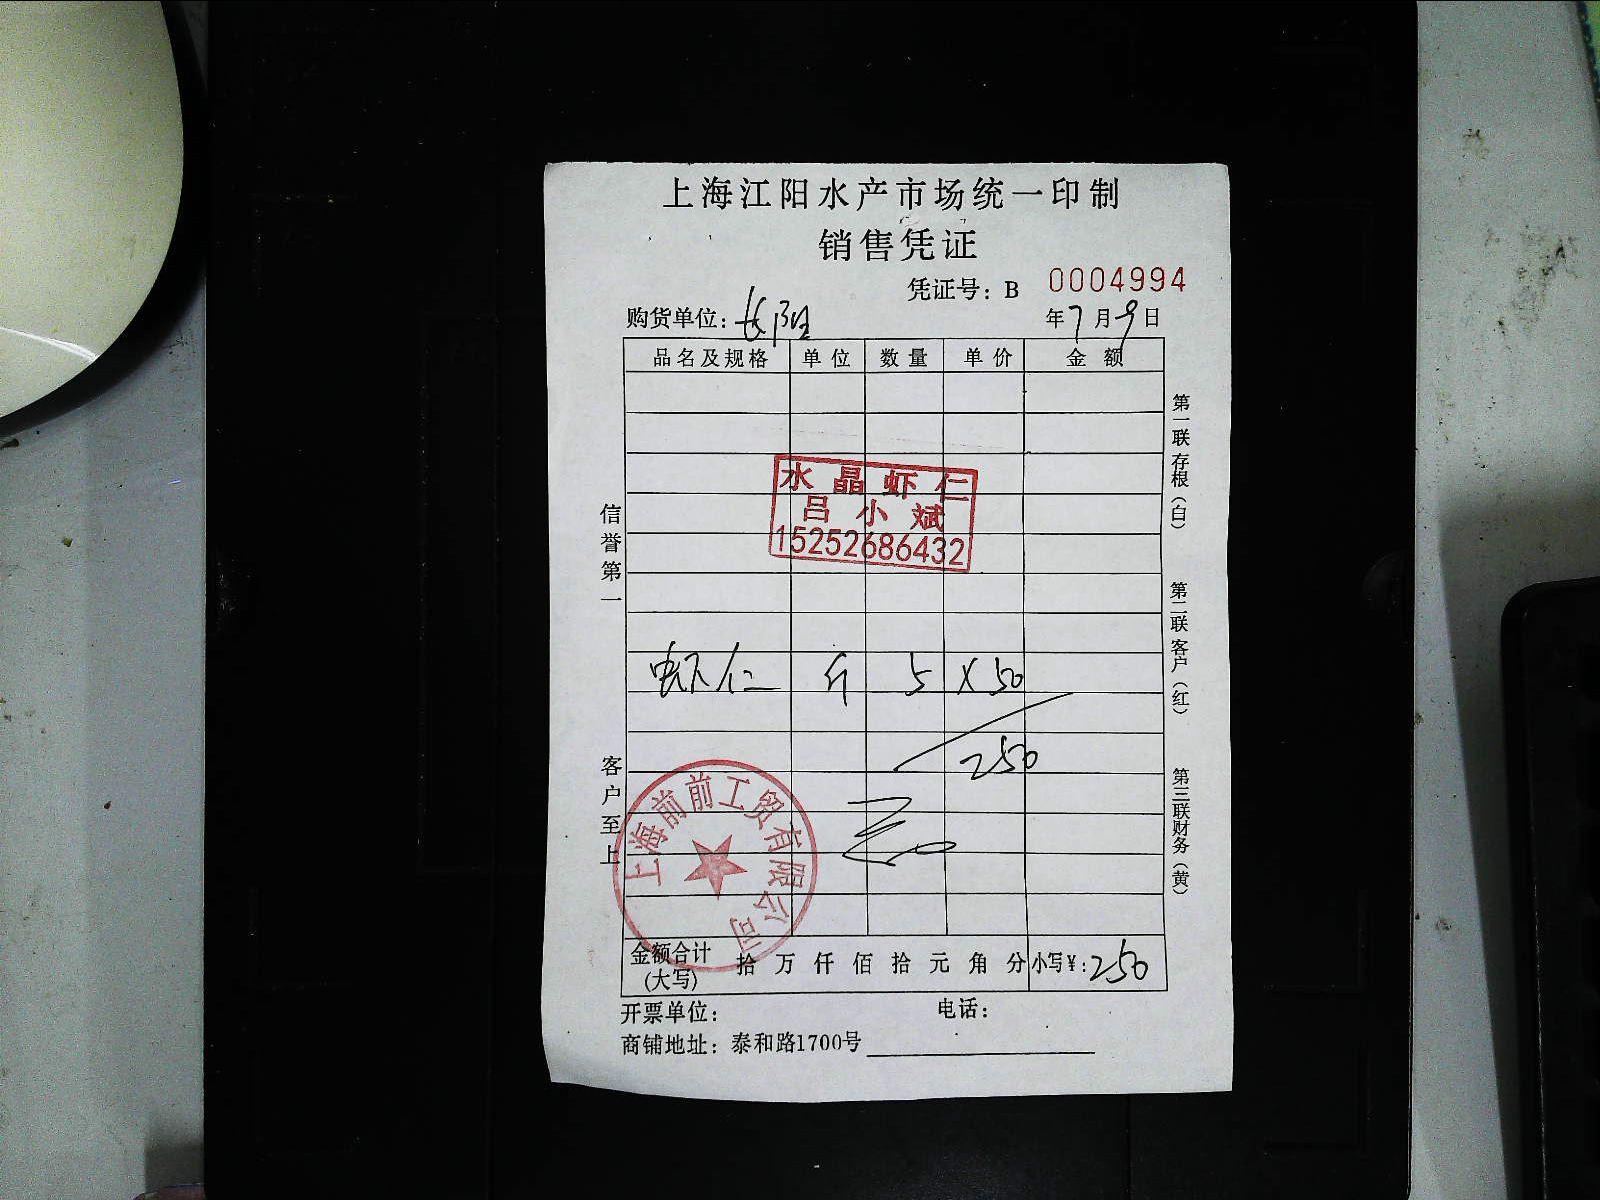 上海江阳水产市场统一印制
销售凭证
凭证号：B 0004994
购货单位：长阳 年7月9日
品名及规格 单位 数量 单价 金额
水晶虾仁
吕小斌
15252686432
虾仁 斤 5 × 50
250
上海前前工贸有限公司
金额合计(大写) 拾 万 仟 佰 拾 元 角 分 小写¥：250
开票单位： 电话：
商铺地址：泰和路1700号
信誉第一
客户至上
第一联 存根（白）
第二联 客户（红）
第三联 财务（黄）